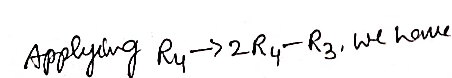 Applying R₄→2R₄-R₃, we have